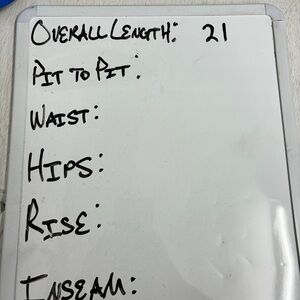 OVERALL LENGTH: 21
PIT TO PIT:
WAIST:
HIPS:
RISE:
INSEAM: